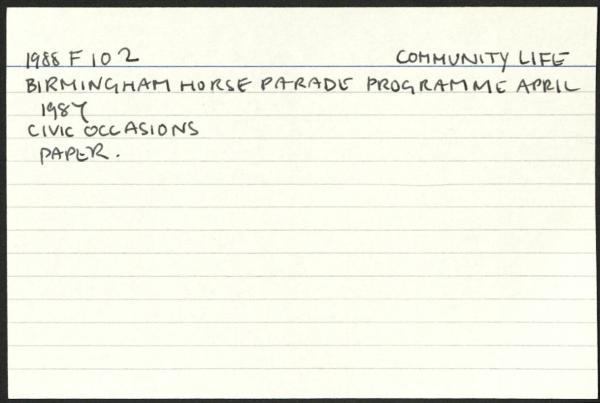 1988 F 102 COMMUNITY LIFE
BIRMINGHAM HORSE PARADE PROGRAMME APRIL
1987
CIVIC OCCASIONS
PAPER.